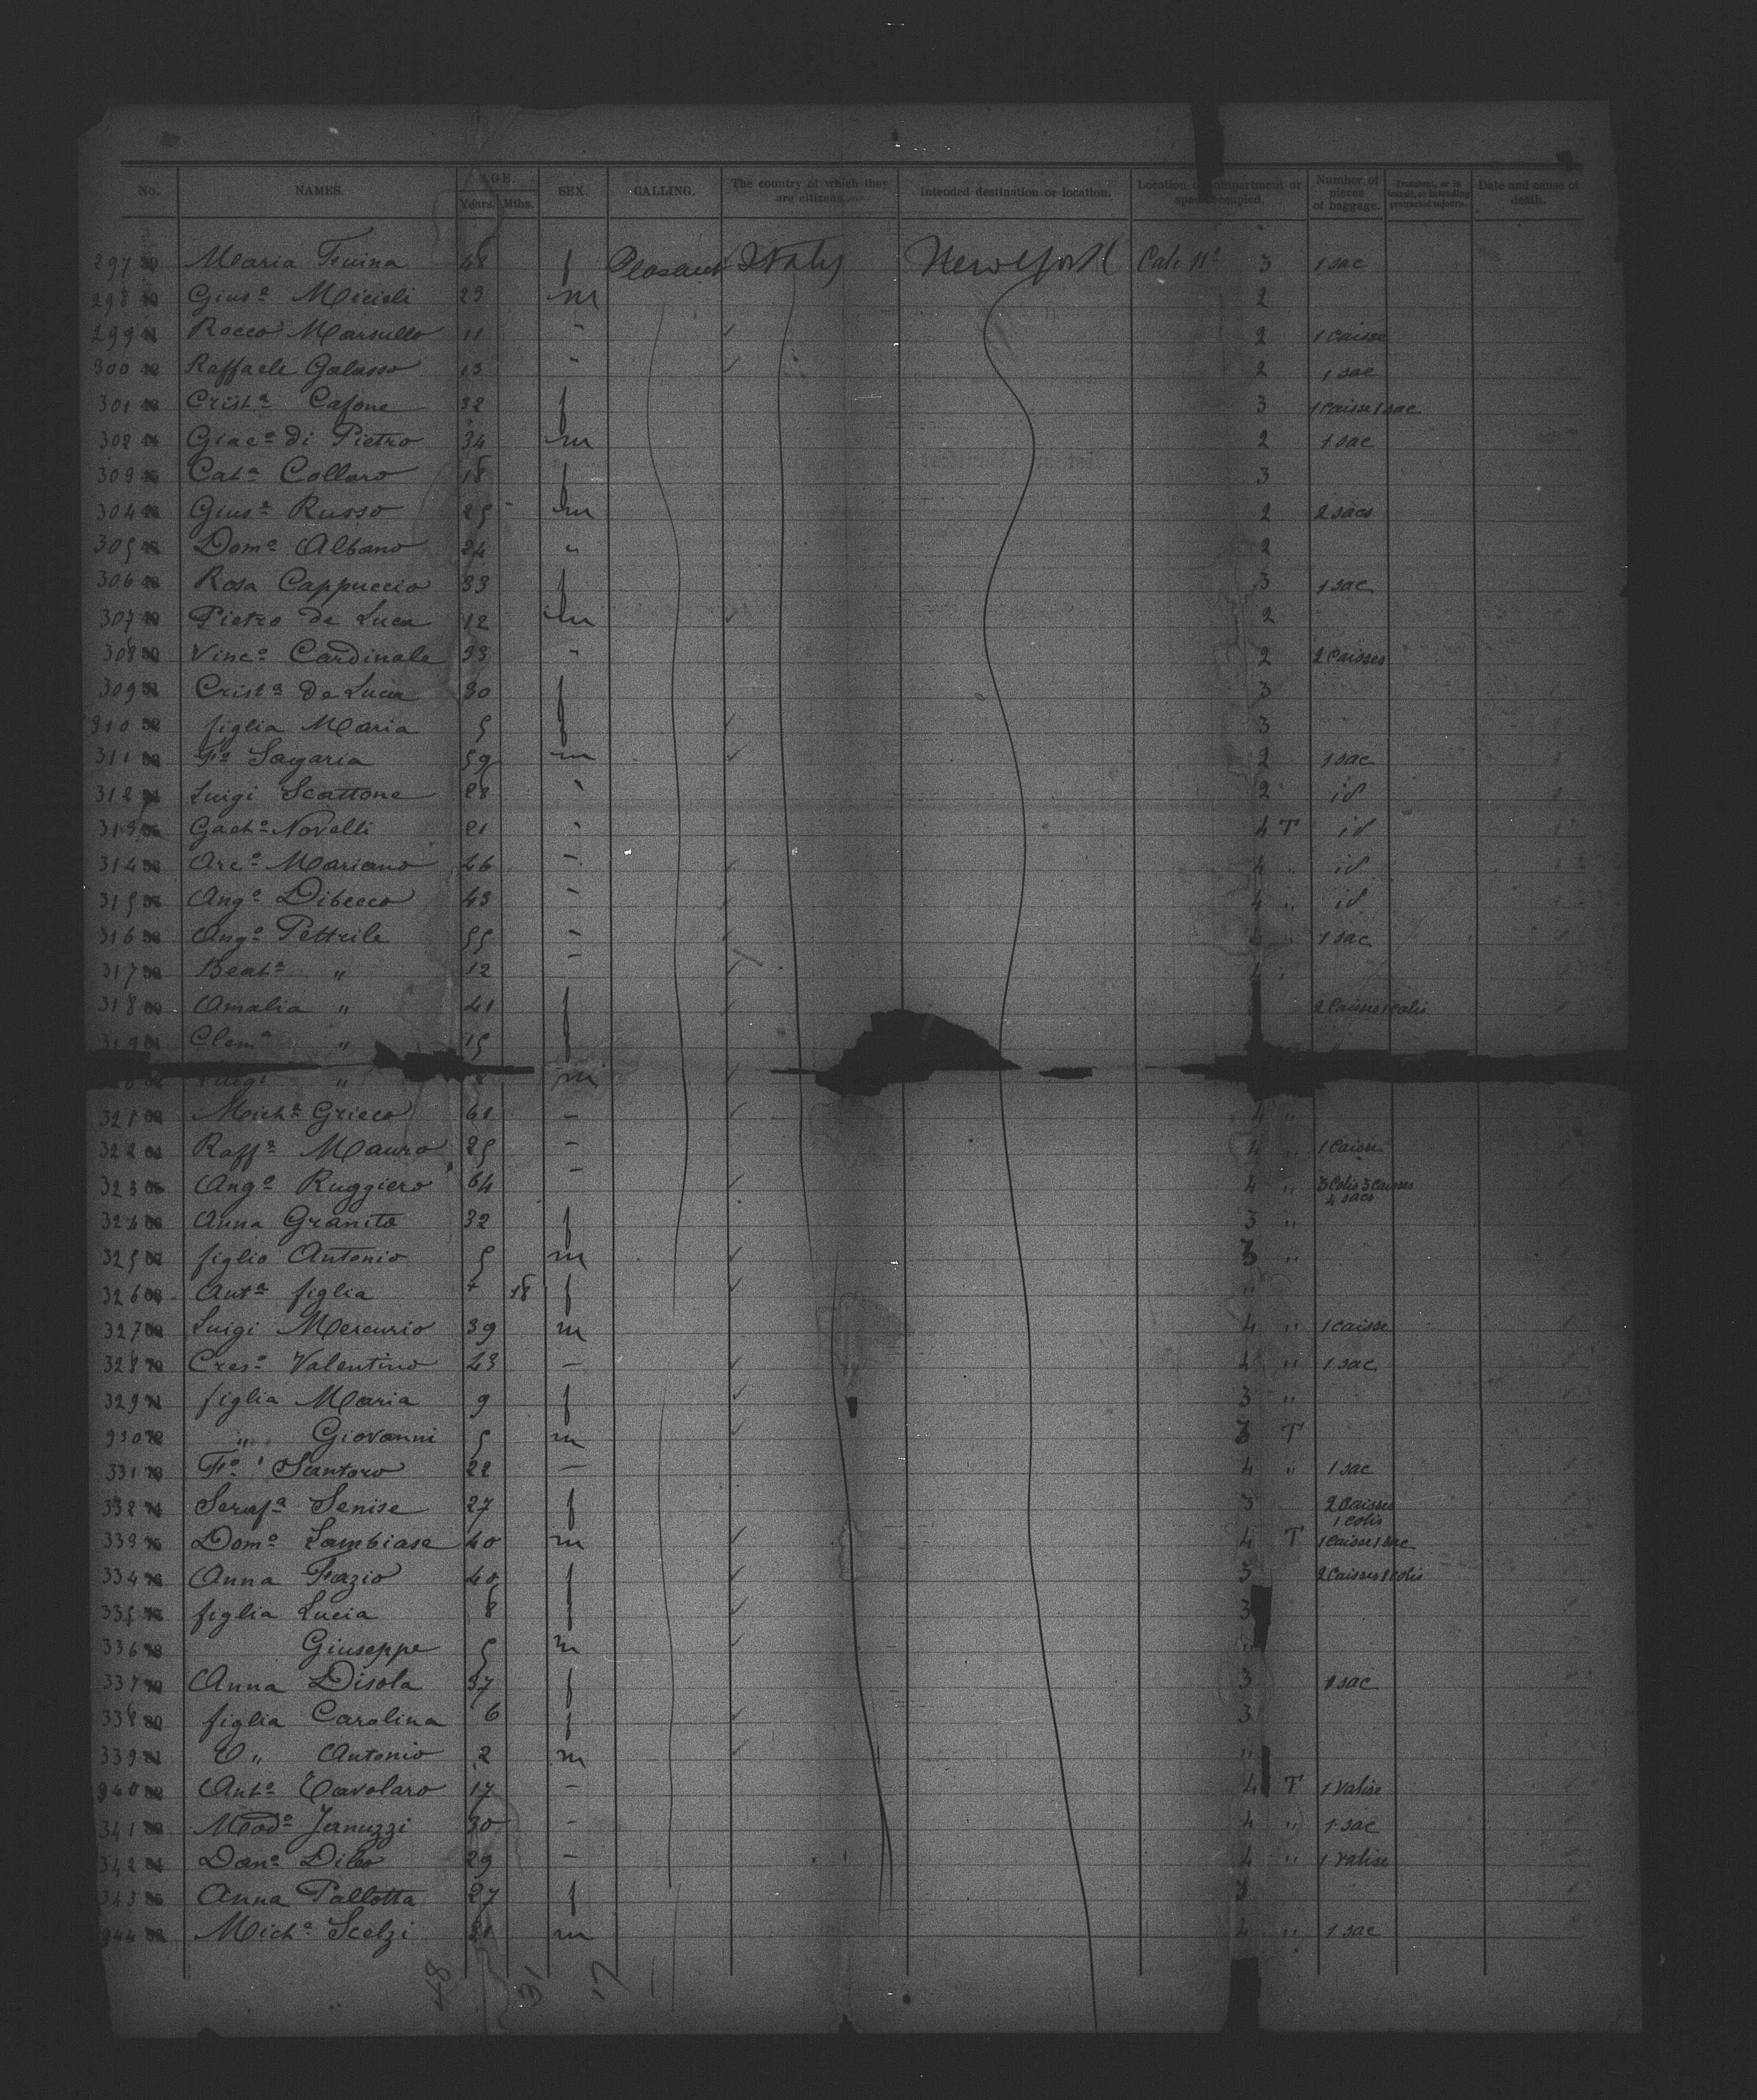 No. NAMES. AGE. Years. Mths. SEX. CALLING. The country of which they are citizens. Intended destination or location. Location compartment or space occupied. Number of pieces of baggage. Transient, or in transit, or intending protracted sojourn. Date and cause of death.
297 Maria Fuina 48 f Peasant Italy New York 3 1 sac
298 Gius.a Micieli 29 m 2
299 Rocco Marsullo 11 " 2 1 caisse
300 Raffaele Galasso 13 " 2 1 sac
301 Crist.a Cafone 32 f 3 1 caisse 1 sac
302 Giac.o di Pietro 34 m 2 1 sac
303 Cat.a Collaro 18 f 3
304 Gius.e Russo 25 m 2 2 sacs
305 Dom.o Albano 24 " 2
306 Rosa Cappuccio 33 f 3 1 sac
307 Pietro de Luca 12 m 2
308 Vinc.o Cardinale 33 " 2 2 Caisses
309 Crist.a de Lucia 30 f 3
310 figlia Maria 5 f 3
311 F.o Sagaria 59 m 2 1 sac
312 Luigi Scattone 28 " 2 id
313 Gaet.o Novelli 21 " 4 T id
314 Arc.o Mariano 26 " 4 " id
315 Ang.o Dibecco 43 " 4 " id
316 Ang.o Pettrile 55 " 4 " 1 sac
317 Beat.o " 12 " 4 "
318 Amalia " 41 f 2 Caisses 1 colis
319 Clem.a " 15 f
Luigi " m
321 Mich.e Grieco 61 – 4 "
322 Raff.e Mauro 25 – 4 " 1 Caisse
323 Ang.o Ruggiero 64 – 4 " 3 Colis 3 Caisses 4 sacs
324 Anna Granito 32 f 3 "
325 figlio Antonio 5 m 3 "
326 Ant.a figlia 18 f "
327 Luigi Mercurio 39 m 4 " 1 caisse
328 Cres.o Valentino 43 – 4 " 1 sac
329 figlia Maria 9 f 3 "
330 " Giovanni 5 m 3 T
331 F.o Santoro 22 – 4 " 1 sac
332 Seraf.a Senise 27 f 3 2 Caisses 1 colis
333 Dom.o Lambiase 40 m 4 T 1 Caisse 1 sac
334 Anna Fazio 40 f 3 2 Caisses 1 colis
335 figlia Lucia 8 f 3
336 Giuseppe 5 m "
337 Anna Disola 37 f 3 1 sac
338 figlia Carolina 6 f 3
339 " Antonio 2 m "
340 Ant.o Tavolaro 17 – 4 T 1 valise
341 Mod.o Januzzi 30 – 4 " 1 sac
342 Don.o Dileo 29 – 4 " 1 valise
343 Anna Pallotta 27 f 3
344 Mich.e Scelzi 21 m 4 " 1 sac
48 31 17